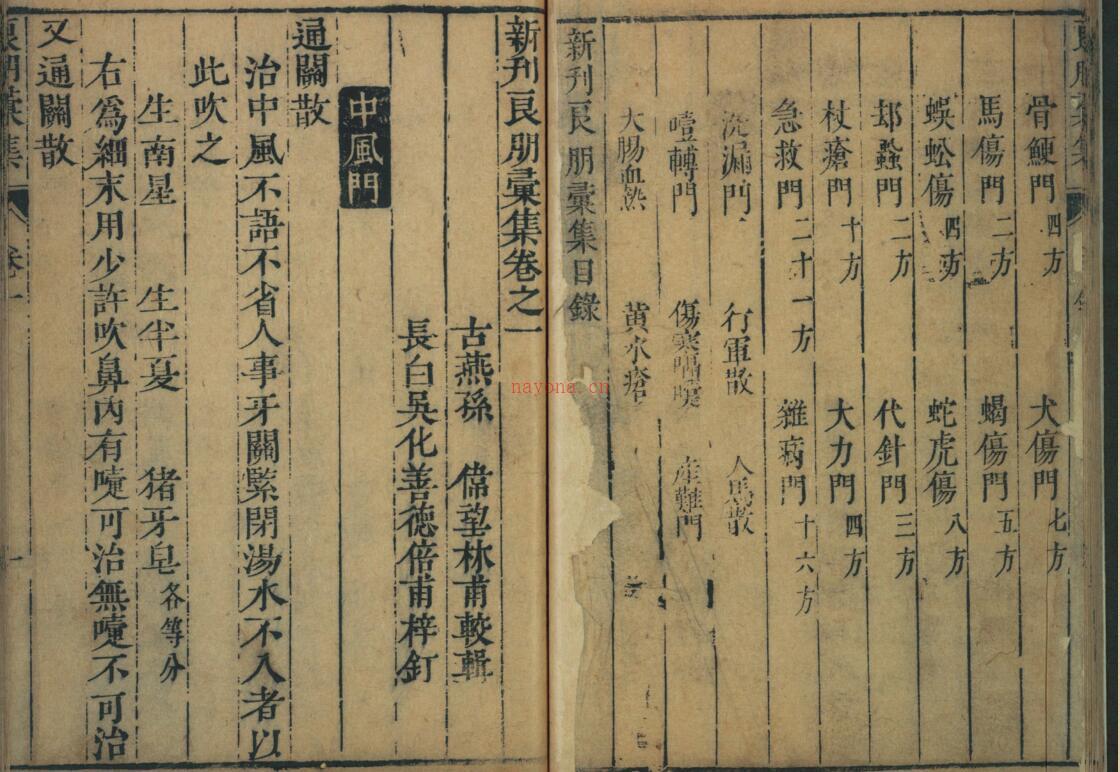 骨鯁門 四方 犬傷門 七方
馬傷門 二方 蝎傷門 五方
蜈蚣傷 四方 蛇虎傷 八方
邚蟲門 二方 代針門 三方
杖瘡門 十方 大力門 四方
急救門 二十一方 雜病門 十六方
漏門 行軍散 人馬散
噎轉門 傷寒 產難門
大腸血熱 黃水瘡
新刊良朋彙集目錄
新刊良朋彙集卷之一
古燕孫 偉望林甫較輯
長白吳化善德倍甫梓訂
中風門
通關散
治中風不語不省人事牙關緊閉湯水不入者以
此吹之
生南星 生半夏 猪牙皂各等分
右為細末用少許吹鼻內有嚏可治無嚏不可治
又通關散
良朋彙集 卷一 一
nayona.cn